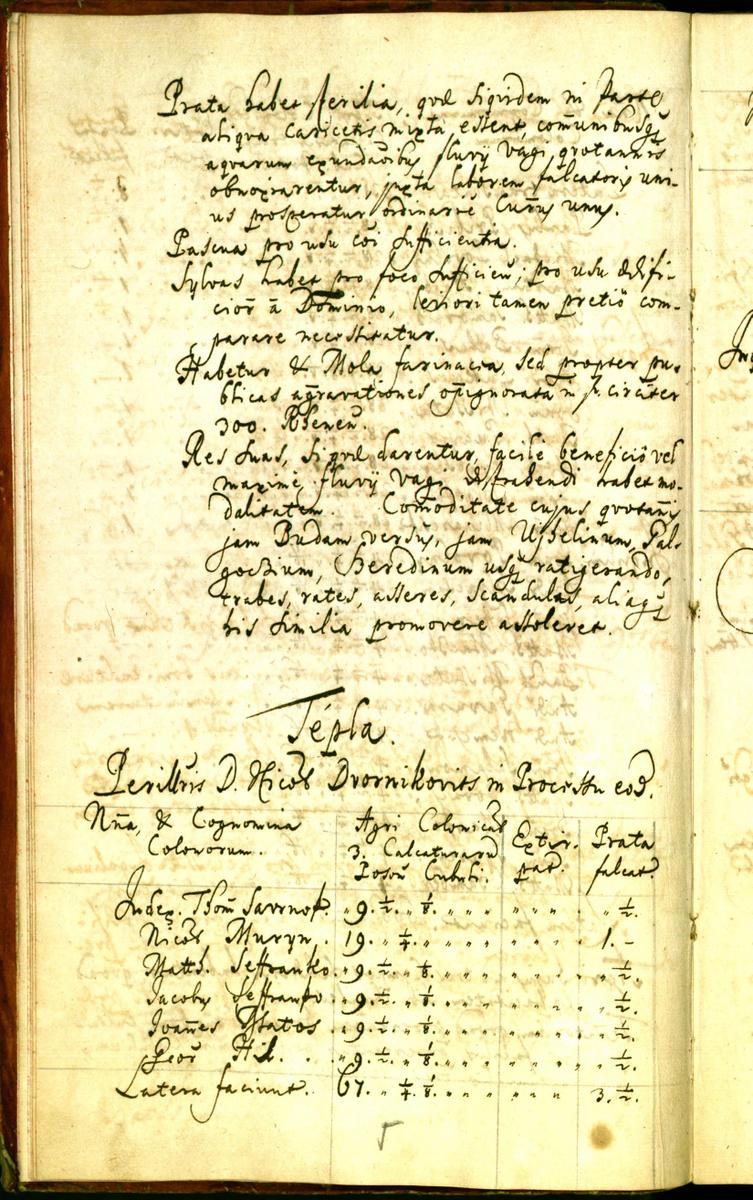 Prata habet sterilia, quæ siquidem in Parte
aliqua caricetis mixta, essent, com̄unibusq̨
aquarum exundaõibus fluvij Vagi quotannis
obnoxiarentur, juxta laborem falcatoris uni-
us prosperatur ordinariè Curus unus.
Pascua pro usu cõi sufficientia.
Sylvas habet pro foco sufficien̄; pro usu ædifi-
cior̄ à Dominio, leviori tamen pretiô com-
parare necessitatur.
Habetur & Mola farinacea, sed propter pu-
blicas agravationes opignorata in f. circiter
300. Rhenen̄.
Res suas, si quæ darentur, facile beneficiô vel
maximè fluvij Vagi distrahendi habet mo-
dalitatem. Com̄oditate cujus quotan̄is
jam Budam versus, jam Ujhelinum, Pal-
goczium, Seredinum usq̨ ratigerando,
trabes, rates, asseres, scandulas, aliaq̨
his similia promovere assoleret.
Tépla.
Perillris D. Nicol Dvornikovits in Processu eod.
Nn̄a, & Cognomina
Colonorum.
Agri Colonical
3. Calcaturarū
Poson̄ Cubuli.
Extir-
pat.
Prata
falcat.
Judex. Thom̄ Savrnoh. " 9. ½. " ⅛. " " " " " " " " ½.
Nicol Muryn. 19. " ¼. " " " " " " " " 1. -
Math. Seffranko. " 9. ½. " ⅛. " " " " " " " " ½.
Jacobus Seffranko. " 9. ½. " ⅛. " " " " " " " " ½.
Joan̄es Matos. " 9. ½. " ⅛. " " " " " " " " ½.
Geor̄ Hil. . . " 9. ½. " ⅛. " " " " " " " " ½.
Latera faciunt. 67. " ¼. ⅛. " " " " " " " 3. ½.
5